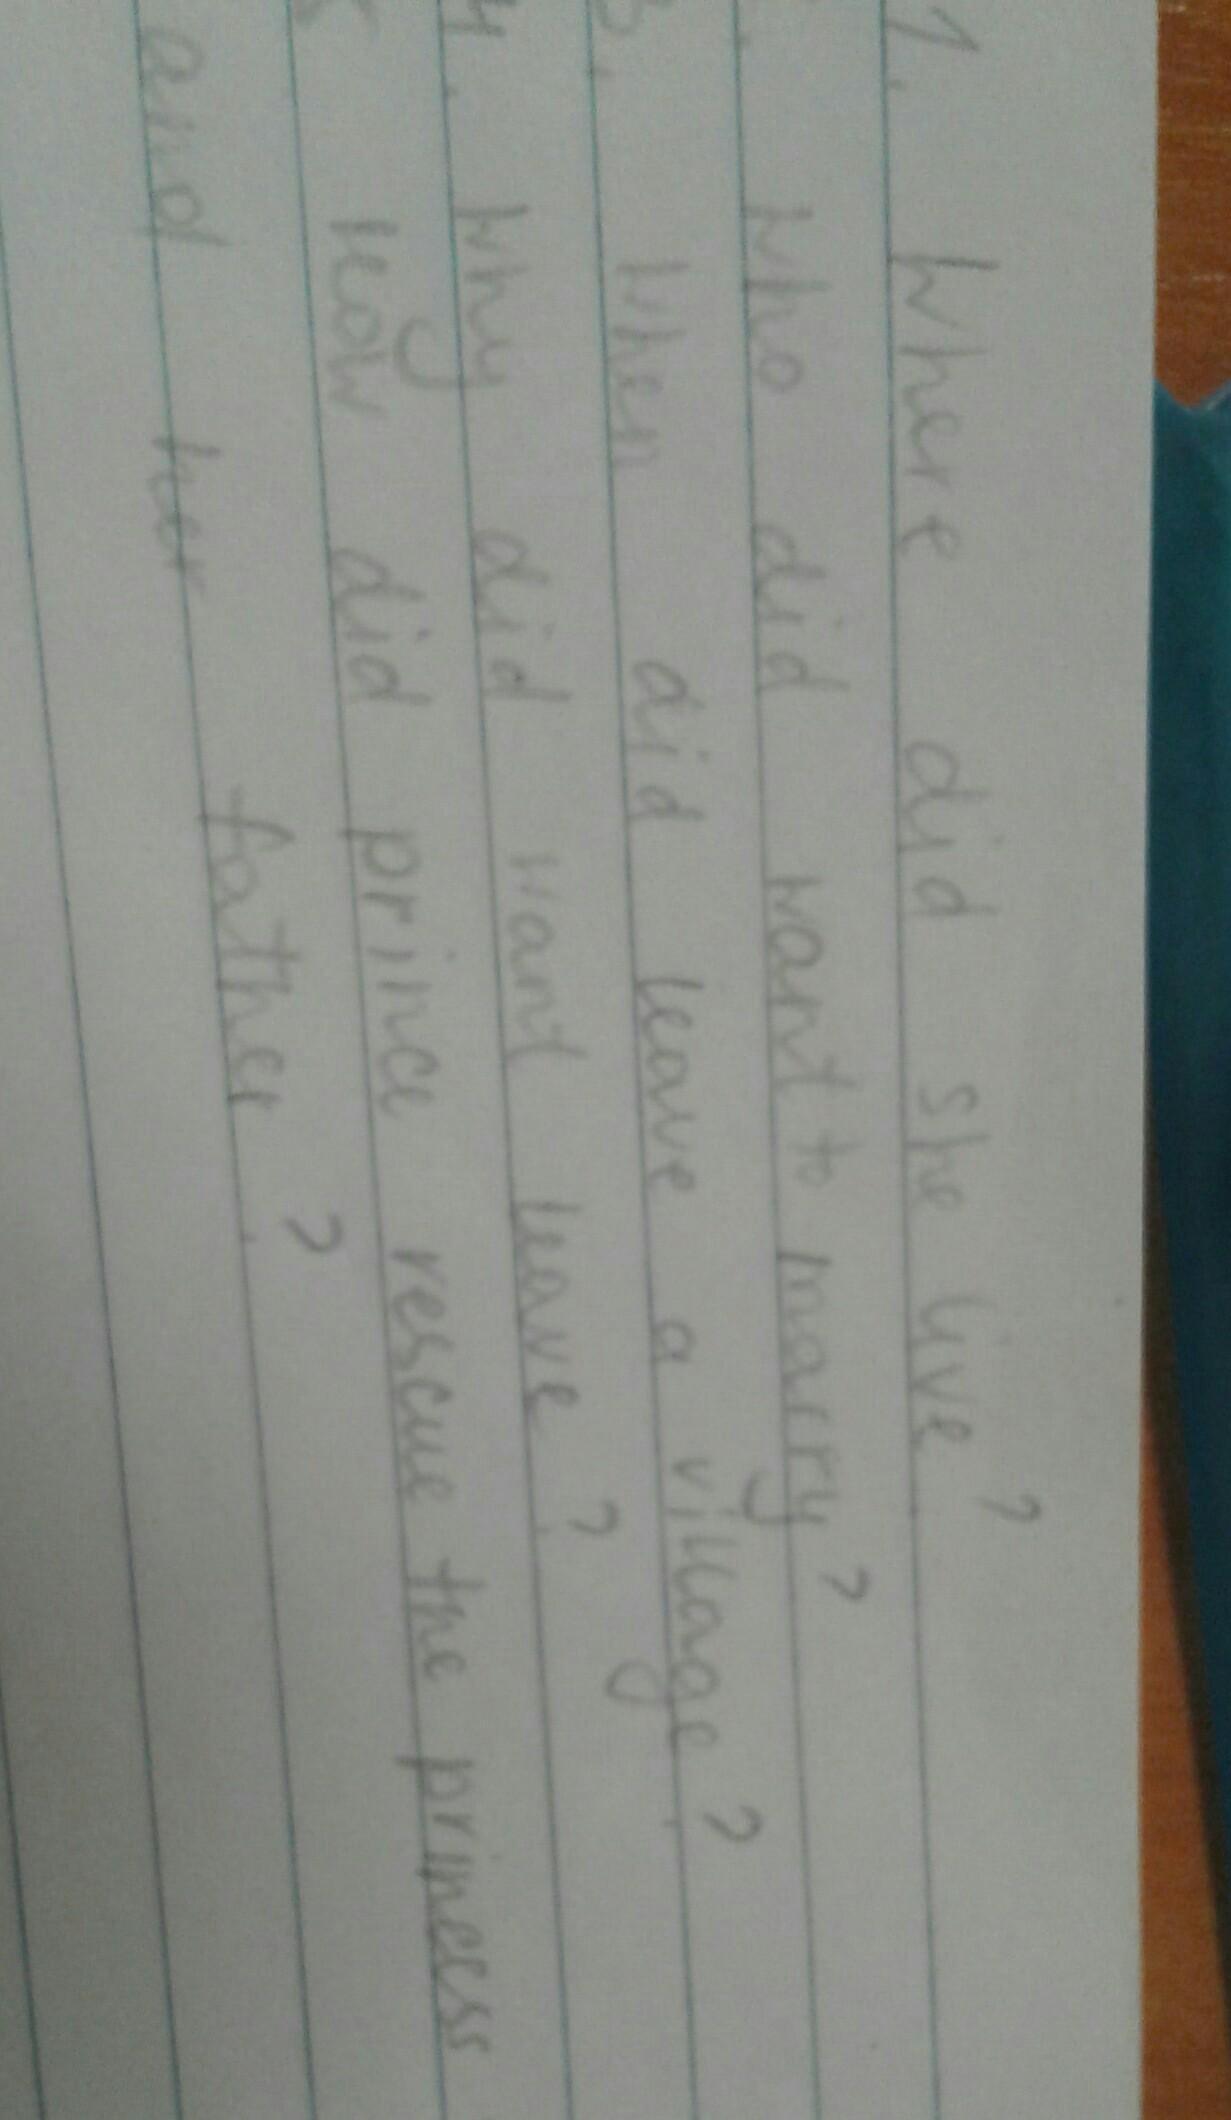 1. Where did she live?
. Who did want to marry?
3. When did leave a village?
4. Why did want leave?
5 How did prince rescue the princess
and her father?